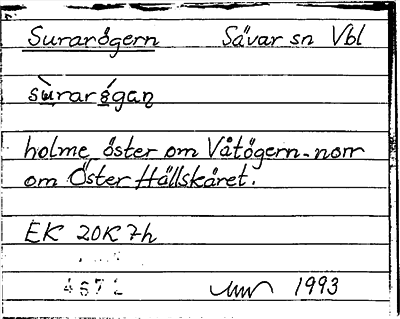 Surarögern Sävar sn Vbl
sùrarǿgan
holme öster om Våtögern-norr
om Öster Hällskäret.
EK 20K 7h
1993